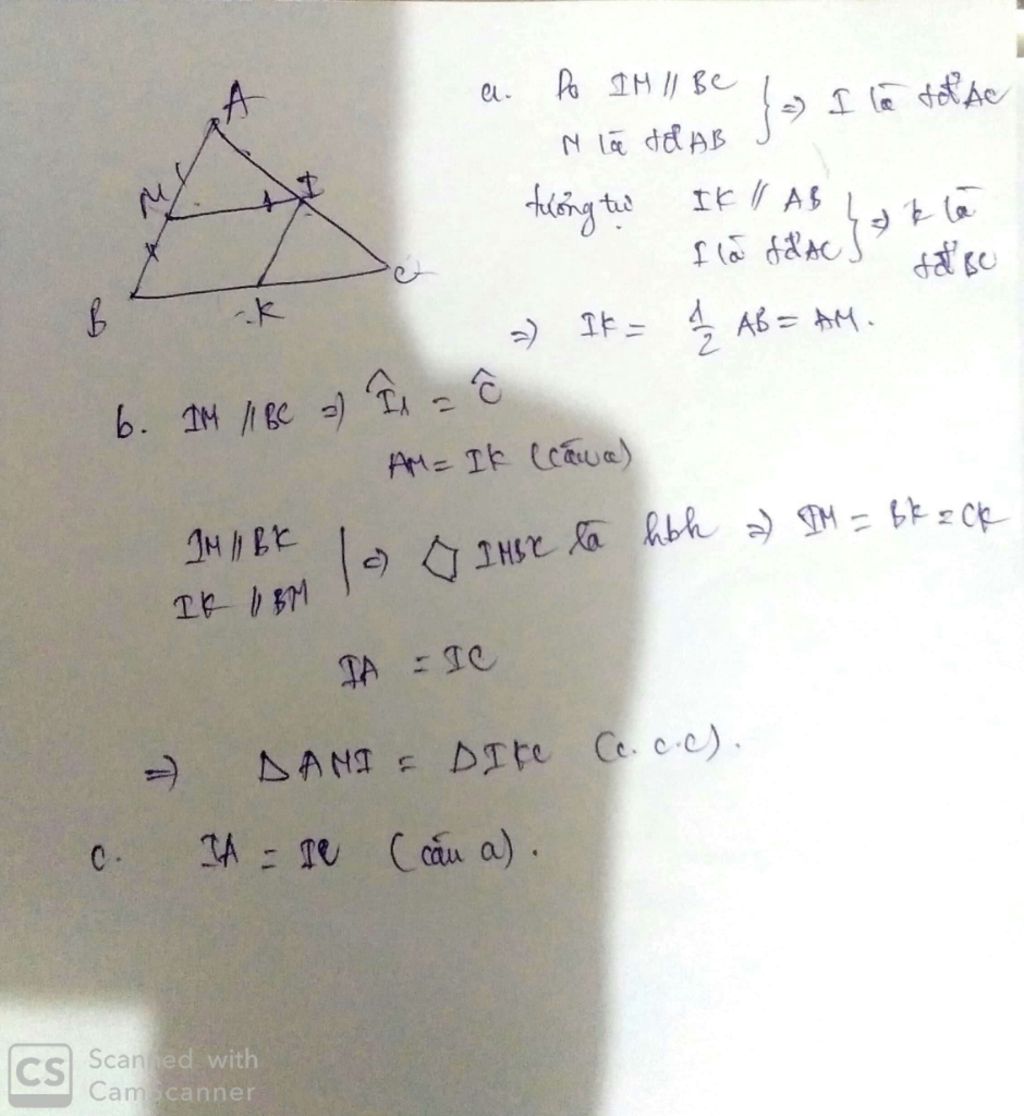 A
M
I
B
K
C
a. Do IM // BC } => I là tđ AC
M là tđ AB
tương tự IK // AB } => K là tđ BC
I là tđ AC
=> IK = 1/2 AB = AM.
b. IM // BC => Î₁ = Ĉ
AM = IK (câu a)
IM // BK | => IMBK là hbh => IM = BK = CK
IK // BM
IA = IC
=> ΔAMI = ΔIKC (c.c.c).
c. IA = IC (câu a).
CS Scanned with
CamScanner